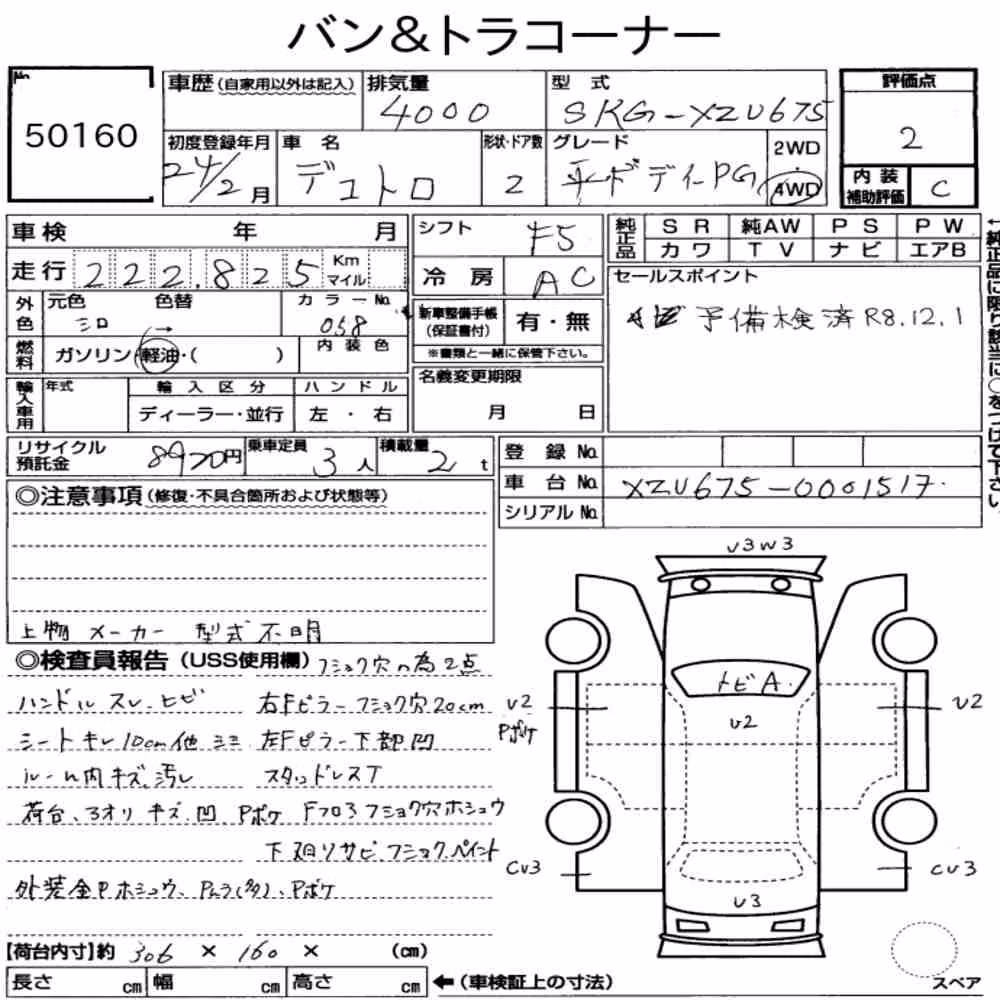 バン&トラコーナー
No.
50160
車歴(自家用以外は記入)
排気量
4000
型式
SKG-XZU675
評価点
2
初度登録年月
24/2月
車名
デュトロ
形状・ドア数
2
グレード
平ボディーPG
2WD
4WD
内装
補助評価
C
車検 年 月
走行 222,825 Km
マイル
シフト
F5
冷房
AC
純正品
SR 純AW PS PW
カワ TV ナビ エアB
セールスポイント
予備検済 R8.12.1
外色
元色
シロ
色替
→
カラーNo.
058
内装色
燃料
ガソリン・軽油・( )
新車整備手帳
(保証書付)
有・無
※書類と一緒に保管下さい。
輸入車用
年式
輸入区分
ディーラー・並行
ハンドル
左・右
名義変更期限
月 日
←純正品に限り該当に○をつけて下さい。
リサイクル
預託金
8920円
乗車定員
3人
積載量
2t
登録No.
車台No. XZU675-0001517
シリアルNo.
◎注意事項(修復・不具合箇所および状態等)
上物 メーカー 型式不明
◎検査員報告(USS使用欄) フショク穴の為2点
ハンドルスレ、ヒビ 右Fピラーフショク穴20cm
シートキレ10cm他 シミ 左Fピラー下部凹
ルーム内キズ、汚レ スタッドレスT
荷台、アオリ キズ、凹、Pボケ Fフロアフショク穴ホシュウ
下廻りサビ、フショク、ペイント
外装全Pホシュウ、Pムラ(多)、Pボケ
【荷台内寸】約 306 × 160 × (cm)
長さ cm 幅 cm 高さ cm ←(車検証上の寸法)
U3W3
トビA
U2
U2
Pボケ
U2
CU3
CU3
U3
スペア